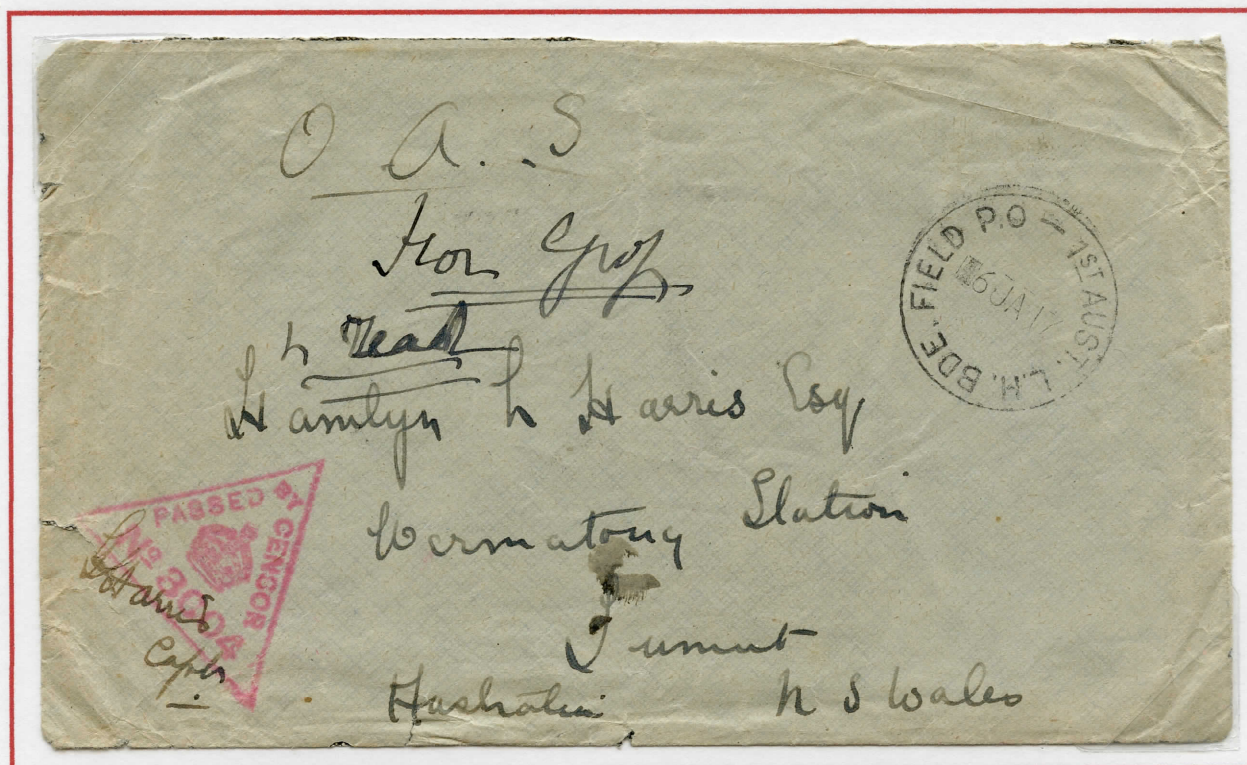 O A. . S
For Grof
to Read
Hamlyn L Harris Esq
Vermatong Station
Tumut
Australia N S Wales
FIELD P.O — 1ST AUST. L.H. BDE.
6 JA 17
PASSED BY CENSOR
No 3004
LHarris
Captn